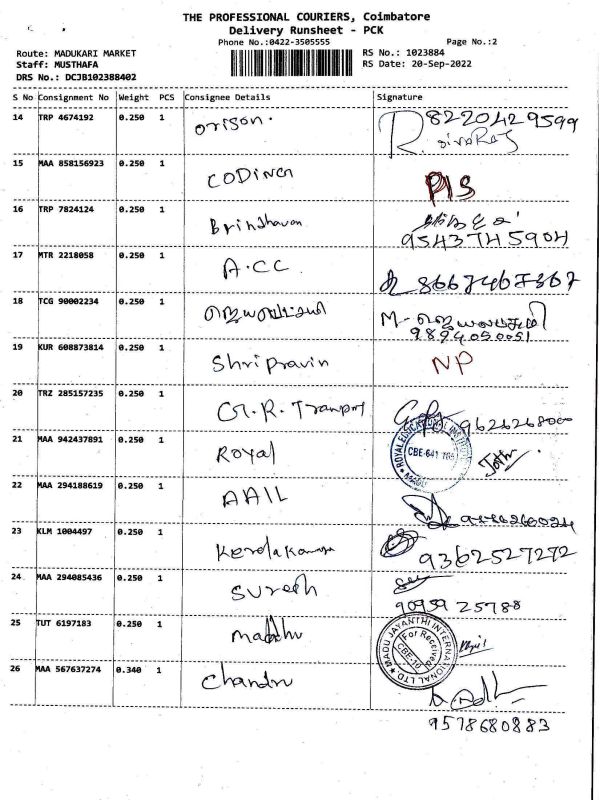 THE PROFESSIONAL COURIERS, Coimbatore
Delivery Runsheet - PCK
Phone No.:0422-3505555 Page No.:2
Route: MADUKARI MARKET RS No.: 1023884
Staff: MUSTHAFA RS Date: 20-Sep-2022
DRS No.: DCJB102388402
S No Consignment No Weight PCS Consignee Details Signature
14 TRP 4674192 0.250 1 Orison. 8220429599
15 MAA 858156923 0.250 1 CODinen PIS
16 TRP 7824124 0.250 1 Brindhavan
9543745904
17 MTR 2218058 0.250 1 A.CC 8667467367
18 TCG 90002234 0.250 1 M- ஜெயலட்சுமி
9894050051
19 KUR 608873814 0.250 1 Shri pravin NP
20 TRZ 285157235 0.250 1 G.R. Tranport 9626268000
21 MAA 942437891 0.250 1 Royal
22 MAA 294188619 0.250 1 AAIL
23 KLM 1004497 0.250 1 9362527272
24 MAA 294085436 0.250 1 Suresh
9095925788
25 TUT 6197183 0.250 1 Maddhu MADU JAYANTHI INTERNATIONAL LTD
For Received
26 MAA 567637274 0.340 1 Chandru
9578680883